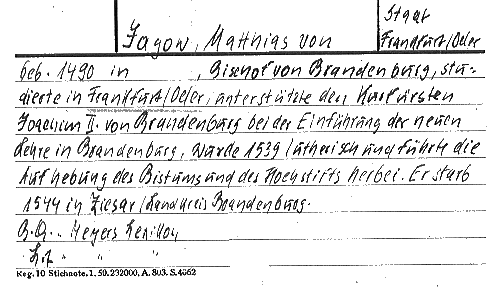 Jagow, Matthias von
Staat
Frankfurt/Oder
geb. 1490 in , Bischof von Brandenburg, stu-
dierte in Frankfurt/Oder, unterstützte den Kurfürsten
Joachim II. von Brandenburg bei der Einführung der neuen
Lehre in Brandenburg, wurde 1539 lutherisch und führte die
Aufhebung des Bistums und des Hochstifts herbei. Er starb
1544 in Ziesar/Landkreis Brandenburg.
B.Q. Meyers Lexikon
L.f. " " "
Reg. 10 Stichnote. 1. 50. 232000. A. 803. S. 4662